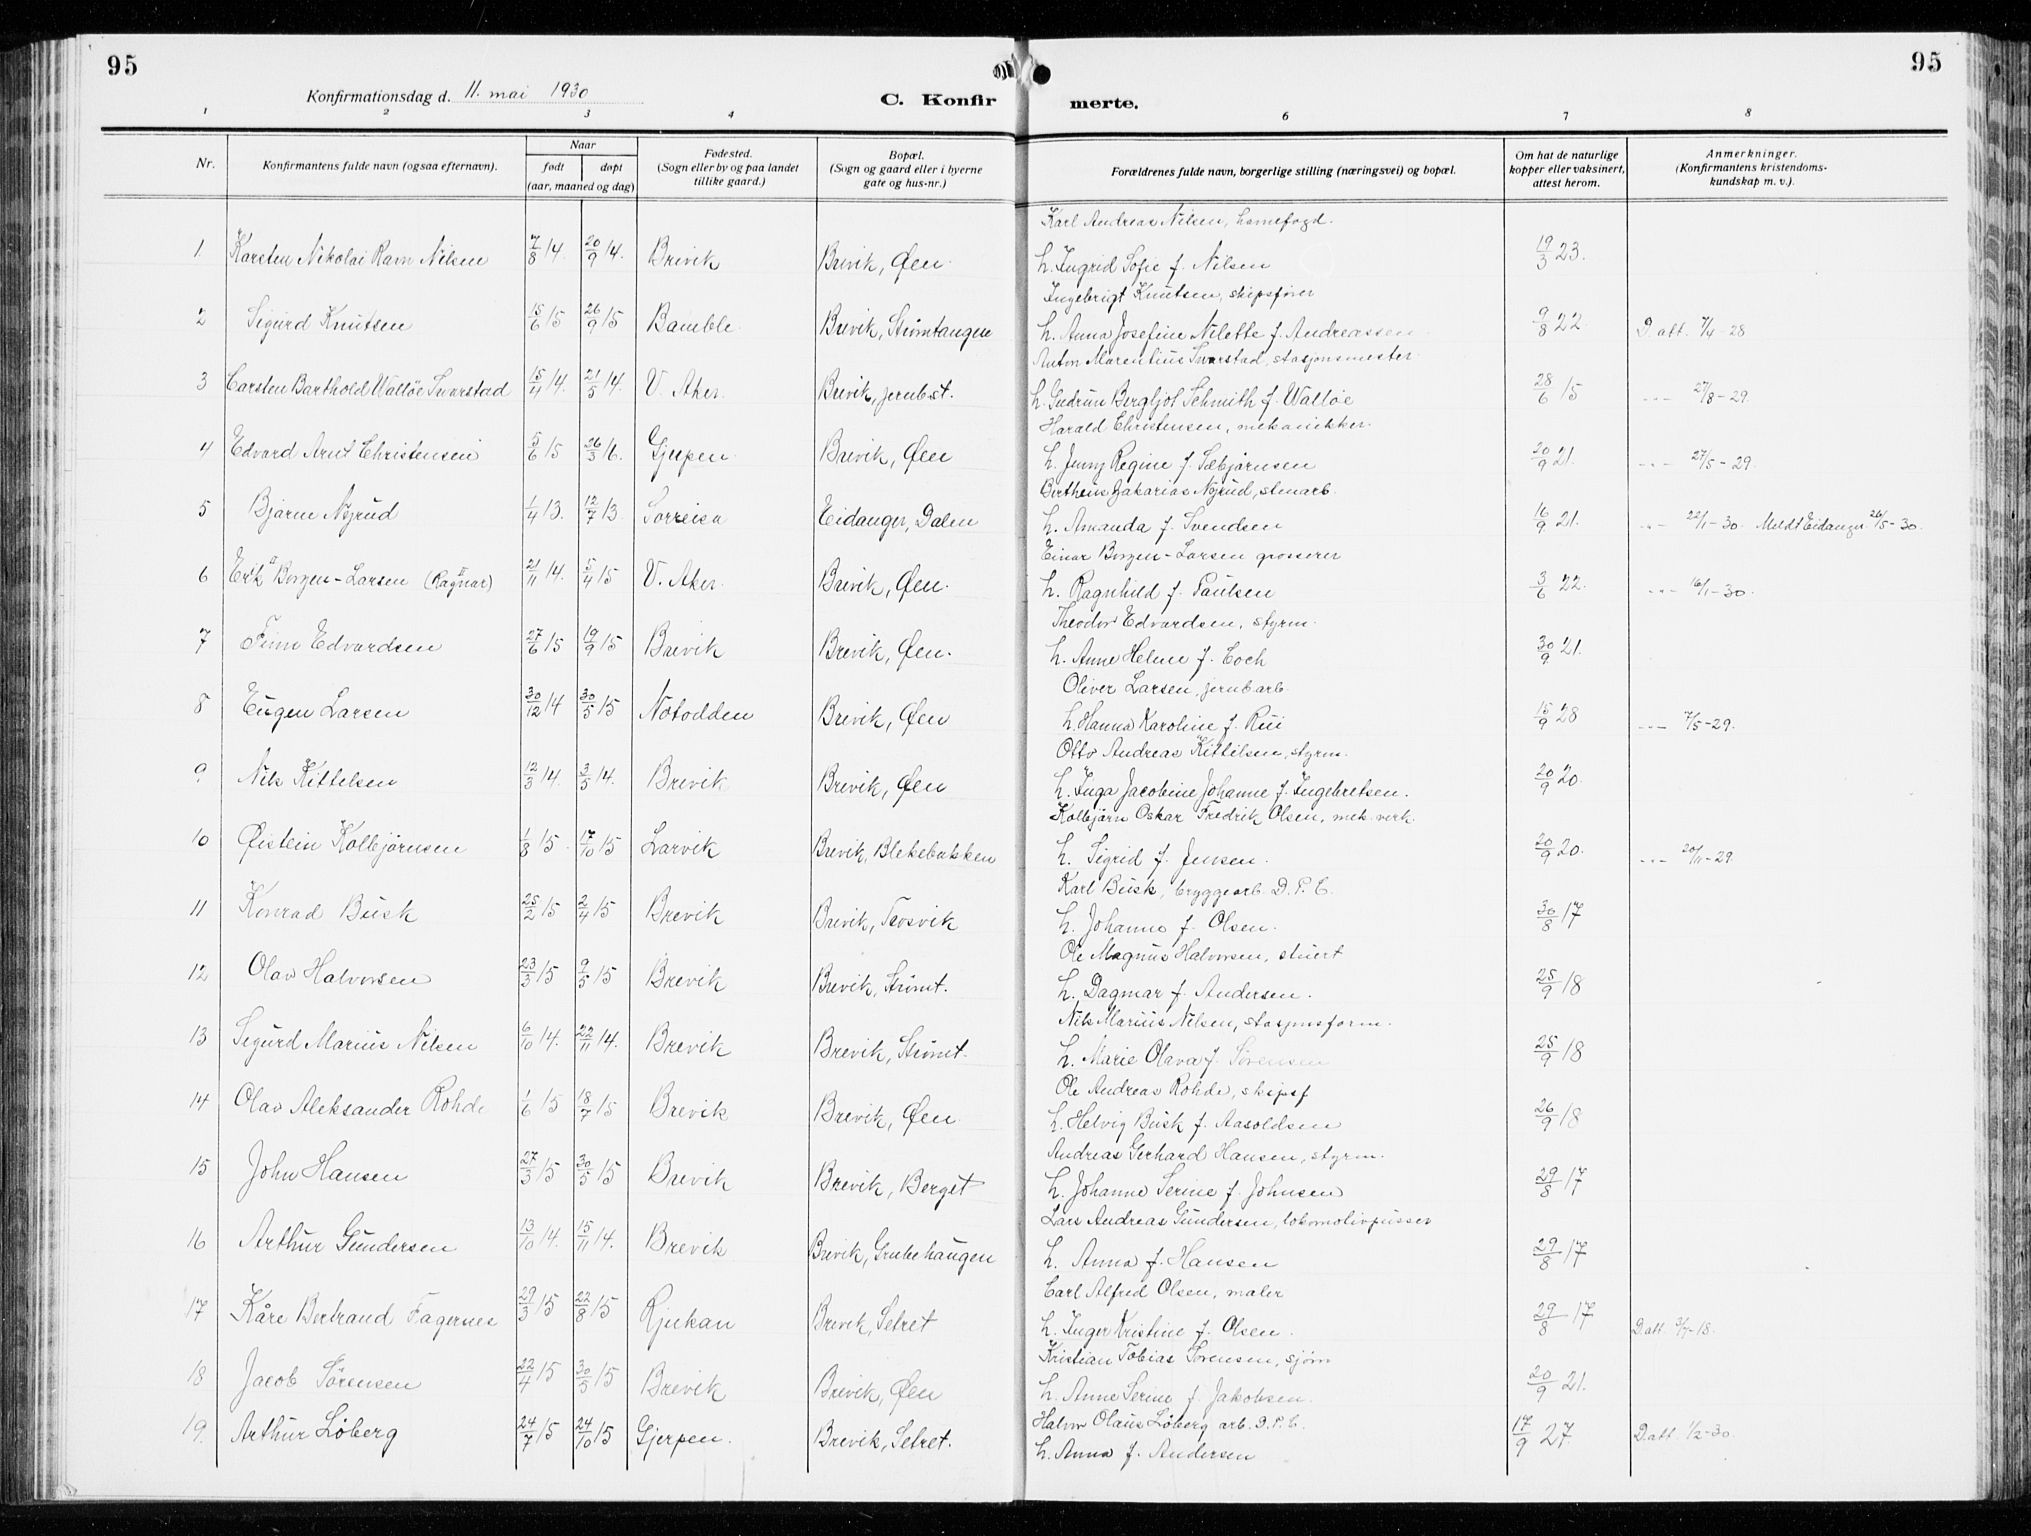 95
95
Konfirmationsdag d. 11. mai 1930
C. Konfirmerte.
1 2 3 4 5 6 7 8
Nr.
Konfirmantens fulde navn (ogsaa efternavn).
Naar
født døpt
(aar, maaned og dag)
Fødested.
(Sogn eller by og paa landet
tillike gaard.)
Bopæl.
(Sogn og gaard eller i byerne
gate og hus-nr.)
Forældrenes fulde navn, borgerlige stilling (næringsvei) og bopæl.
Om hat de naturlige
kopper eller vaksinert,
attest herom.
Anmerkninger.
(Konfirmantens kristendoms-
kundskap m. v.).
Karl Andreas Nilsen, havnefogd.
1 Karsten Nikolai Ravn Nilsen 7/8 14. 20/9 14. Brevik Brevik, Øen. h. Ingrid Sofie f. Nilsen 19/3 23.
Ingebrigt Knutsen, skipsfører
2 Sigurd Knutsen 15/6 15 26/9 15 Bamble Brevik, Strømtangen h. Anna Josefine Nilette f. Andreassen 9/8 22. D. att. 7/4-28
Anton Marentius Svarstad, stasjonsmester
3 Carsten Barthold Walløe Svarstad 15/4 14. 21/5 14. V. Aker. Brevik, jernbst. h. Gudrun Bergljot Schmith f. Walløe 28/6 15 -"- 27/8-29.
Harald Christensen, mekanikker.
4 Edvard Arnt Christensen 5/6 15 26/3 16. Gjerpen. Brevik, Øen h. Jenny Regine f. Sæbjørnsen 20/9 21. -"- 27/5-29.
Bertheus Zakarias Nyrud, stenarb.
5 Bjarne Nyrud 1/4 13. 12/7 13. Sørreisa Eidanger, Dalen h. Amanda f. Svendsen 16/9 21. -"- 22/1-30. Meldt Eidanger 26/5-30.
Einar Borgen-Larsen grosserer
6 Erik Borgen-Larsen (Ragnar) 21/11 14. 5/4 15 V. Aker. Brevik, Øen. h. Ragnhild f. Paulsen 3/6 22. -"- 16/1-30.
Theodor Edvardsen, styrm.
7 Finn Edvardsen 27/6 15 19/9 15 Brevik Brevik, Øen. h. Anne Helene f. Coch 30/9 21.
Oliver Larsen, jernb.arb.
8 Eugen Larsen 30/12 14 30/5 15 Notodden Brevik, Øen h. Hanna Karoline f. Rui 15/9 28 -"- 7/5-29.
Otto Andreas Kittilsen, styrm.
9. Nils Kittelsen 12/3 14. 3/5 14. Brevik Brevik, Øen h. Inga Jacobine Johanne f. Ingebretsen. 20/9 20.
Kolbjørn Oskar Fredrik Olsen, mek. verk.
10 Øistein Kolbjørnsen 1/8 15. 17/10 15 Larvik Brevik, Blekebakken h. Sigrid f. Jensen. 20/9 20. -"- 20/11-29.
Karl Busk, bryggearb. D. P. C.
11 Konrad Busk 25/2 15 2/4 15 Brevik Brevik, Trosvik h. Johanne f. Olsen. 30/8 17
Ole Magnus Halvorsen, stuert
12 Olav Halvorsen 23/3 15 9/5 15 Brevik Brevik, Strømt. h. Dagmar f. Andersen. 25/9 18
Nils Marius Nilsen, stasjonsform.
13 Sigurd Marius Nilsen 6/10 14. 22/11 14. Brevik Brevik, Strømt. h. Marie Olava f. Sørensen 25/9 18
Ole Andreas Rohde, skipsf
14 Olav Aleksander Rohde 1/6 15 18/7 15 Brevik Brevik, Øen. h. Helvig Busk f. Aasoldsen 26/9 18
Andreas Gerhard Hansen, styrm.
15 John Hansen 27/3 15 30/5 15 Brevik Brevik, Berget h. Johanne Serine f. Johnsen 29/8 17
Lars Andreas Gundersen, lokomotivpusser
16 Arthur Gundersen 13/10 14. 15/11 14. Brevik Brevik, Grubehaugen h. Anna f. Hansen 29/8 17
Carl Alfred Olsen, maler
17 Kåre Bertrand Fagernes 29/3 15 22/8 15 Rjukan Brevik, Setret h. Inger Kristine f. Olsen. 29/8 17 D. att. 3/7-18.
Kristian Tobias Sørensen, sjøm
18 Jacob Sørensen 22/4 15 30/5 15 Brevik Brevik, Øen h. Anne Serine f. Jakobsen. 20/9 21.
Halvor Olaus Løberg arb. D.P.C.
19. Arthur Løberg 24/7 15 24/10 15 Gjerpen. Brevik, Setret. h. Anna f. Andersen 17/9 27. D. att. 1/2-30.